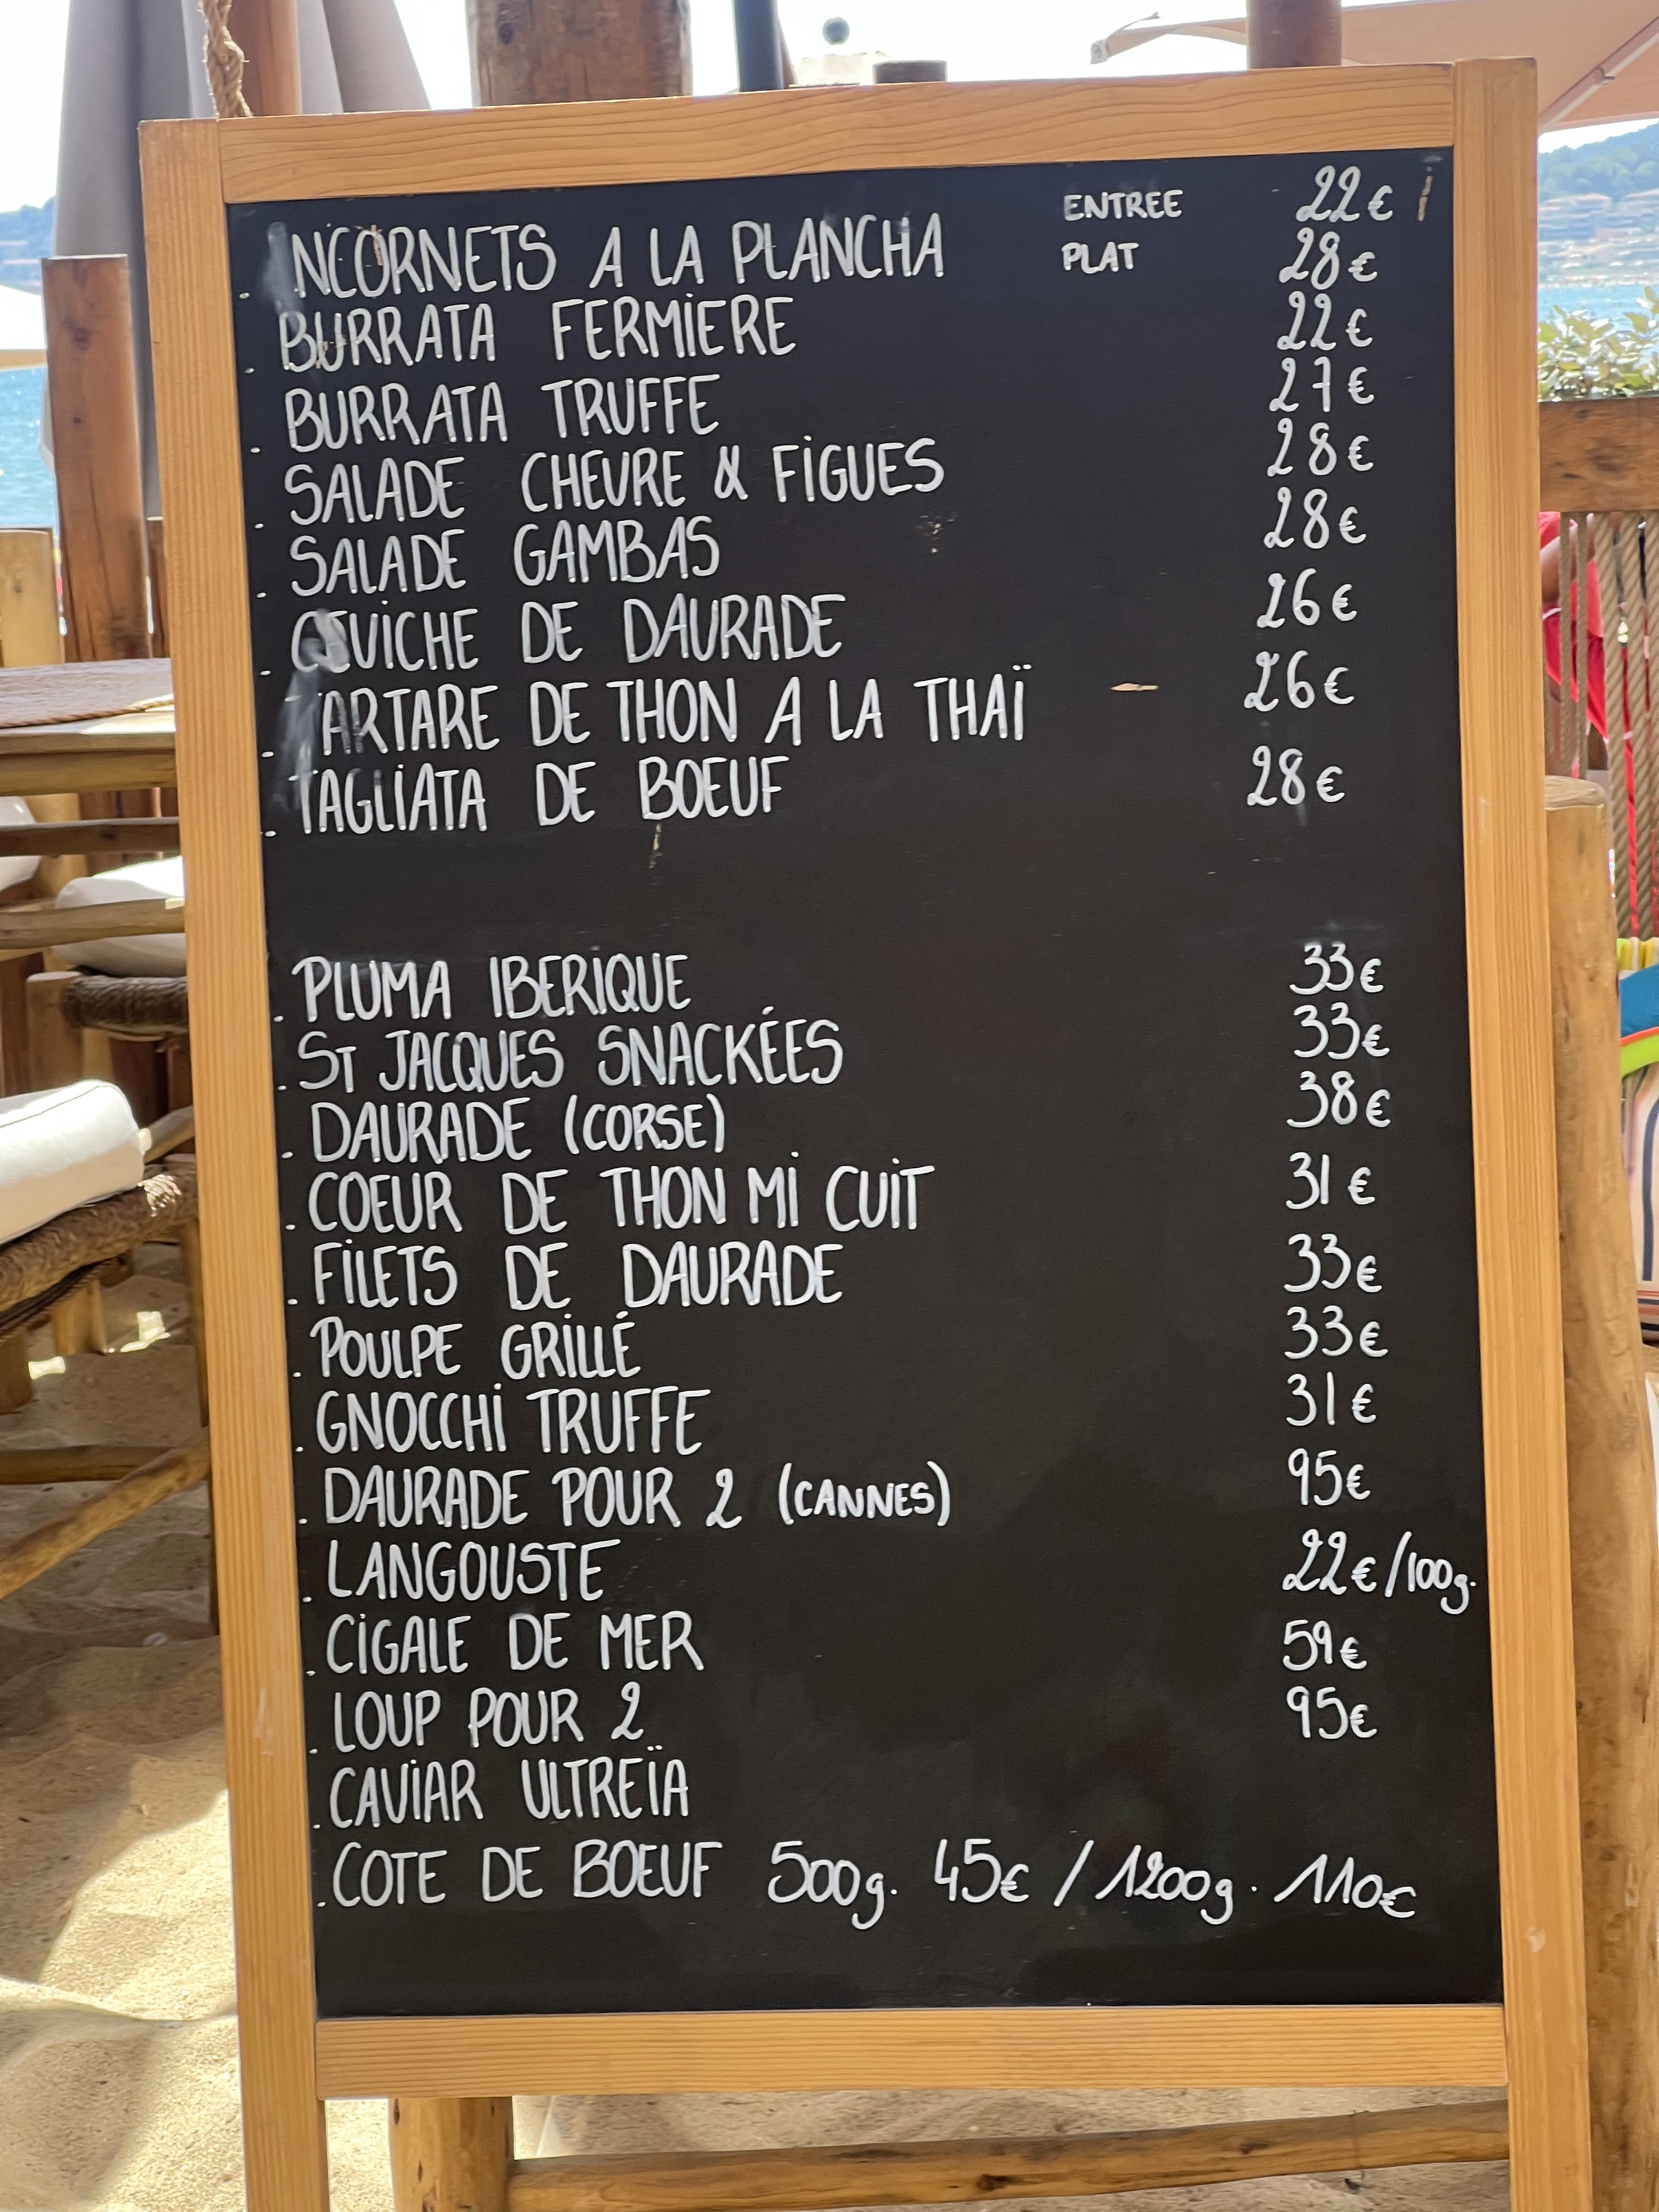 . NCORNETS A LA PLANCHA ENTREE 22€
PLAT 28€
. BURRATA FERMIERE 22€
. BURRATA TRUFFE 27€
. SALADE CHEVRE & FIGUES 28€
. SALADE GAMBAS 28€
. CEVICHE DE DAURADE 26€
. TARTARE DE THON A LA THAÏ 26€
. TAGLIATA DE BOEUF 28€
. PLUMA IBERIQUE 33€
. ST JACQUES SNACKÉES 33€
. DAURADE (CORSE) 38€
. COEUR DE THON MI CUIT 31€
. FILETS DE DAURADE 33€
. POULPE GRILLÉ 33€
. GNOCCHI TRUFFE 31€
. DAURADE POUR 2 (CANNES) 95€
. LANGOUSTE 22€/100g.
. CIGALE DE MER 59€
. LOUP POUR 2 95€
. CAVIAR ULTREÏA
. COTE DE BOEUF 500g. 45€ / 1200g. 110€